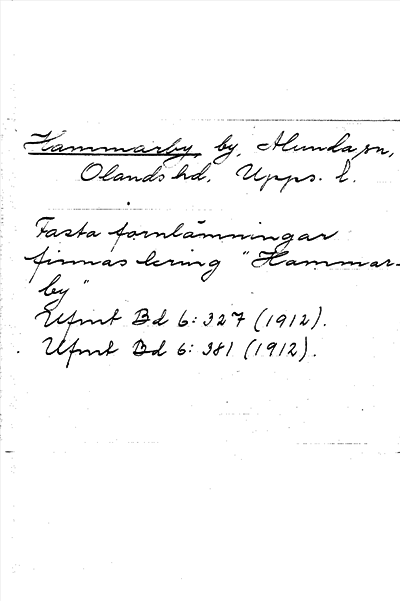 Hammarby by, Alunda sn,
Olands hd. Upps. l.
Fasta fornlämningar
finnas kring "Hammar-
by"
Ufmt Bd 6: 327 (1912).
Ufmt Bd 6: 381 (1912).